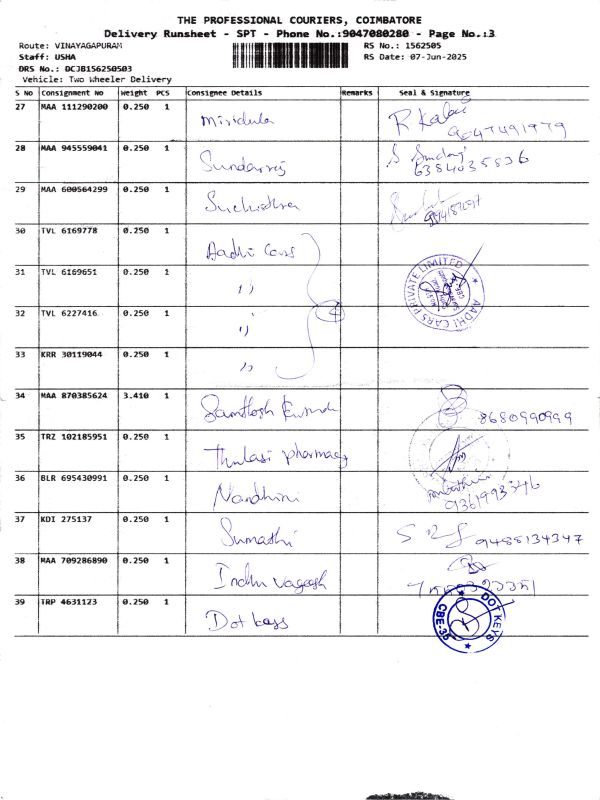 THE PROFESSIONAL COURIERS, COIMBATORE
Delivery Runsheet - SPT - Phone No.:9047080280 - Page No.:3
Route: VINAYAGAPURAM RS No.: 1562505
Staff: USHA RS Date: 07-Jun-2025
DRS No.: DCJB156250503
Vehicle: Two Wheeler Delivery
S No Consignment No Weight PCS Consignee Details Remarks Seal & Signature
27 MAA 111290200 0.250 1 Mridula
28 MAA 945559041 0.250 1 Sundarraj 6384035836
29 MAA 600564299 0.250 1 Suchithra
30 TVL 6169778 0.250 1 Aadhi Cars
31 TVL 6169651 0.250 1 " AADHI CARS PRIVATE LIMITED
32 TVL 6227416 0.250 1 " 4
33 KRR 30119044 0.250 1 "
34 MAA 870385624 3.410 1 Santhosh Kumar 8680990999
35 TRZ 102185951 0.250 1 Thulasi pharmacy
36 BLR 695430991 0.250 1 Nandhini 9361993346
37 KDI 275137 0.250 1 Sumathi 9488134347
38 MAA 709286890 0.250 1
39 TRP 4631123 0.250 1 Dot keys DOT KEYS CBE-35